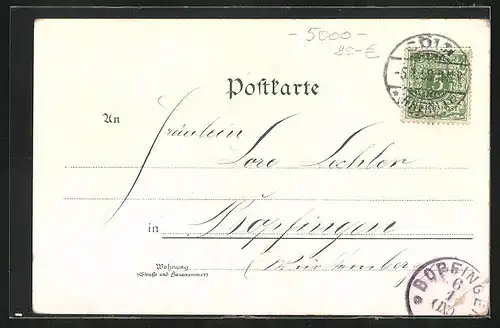 - 5000 -
25-€
CÖLN
5
Postkarte
An Fräulein
Lore Lechler
in Bopfingen
(Württemberg)
Wohnung
(Straße und Hausnummer)
BOPFINGEN
6